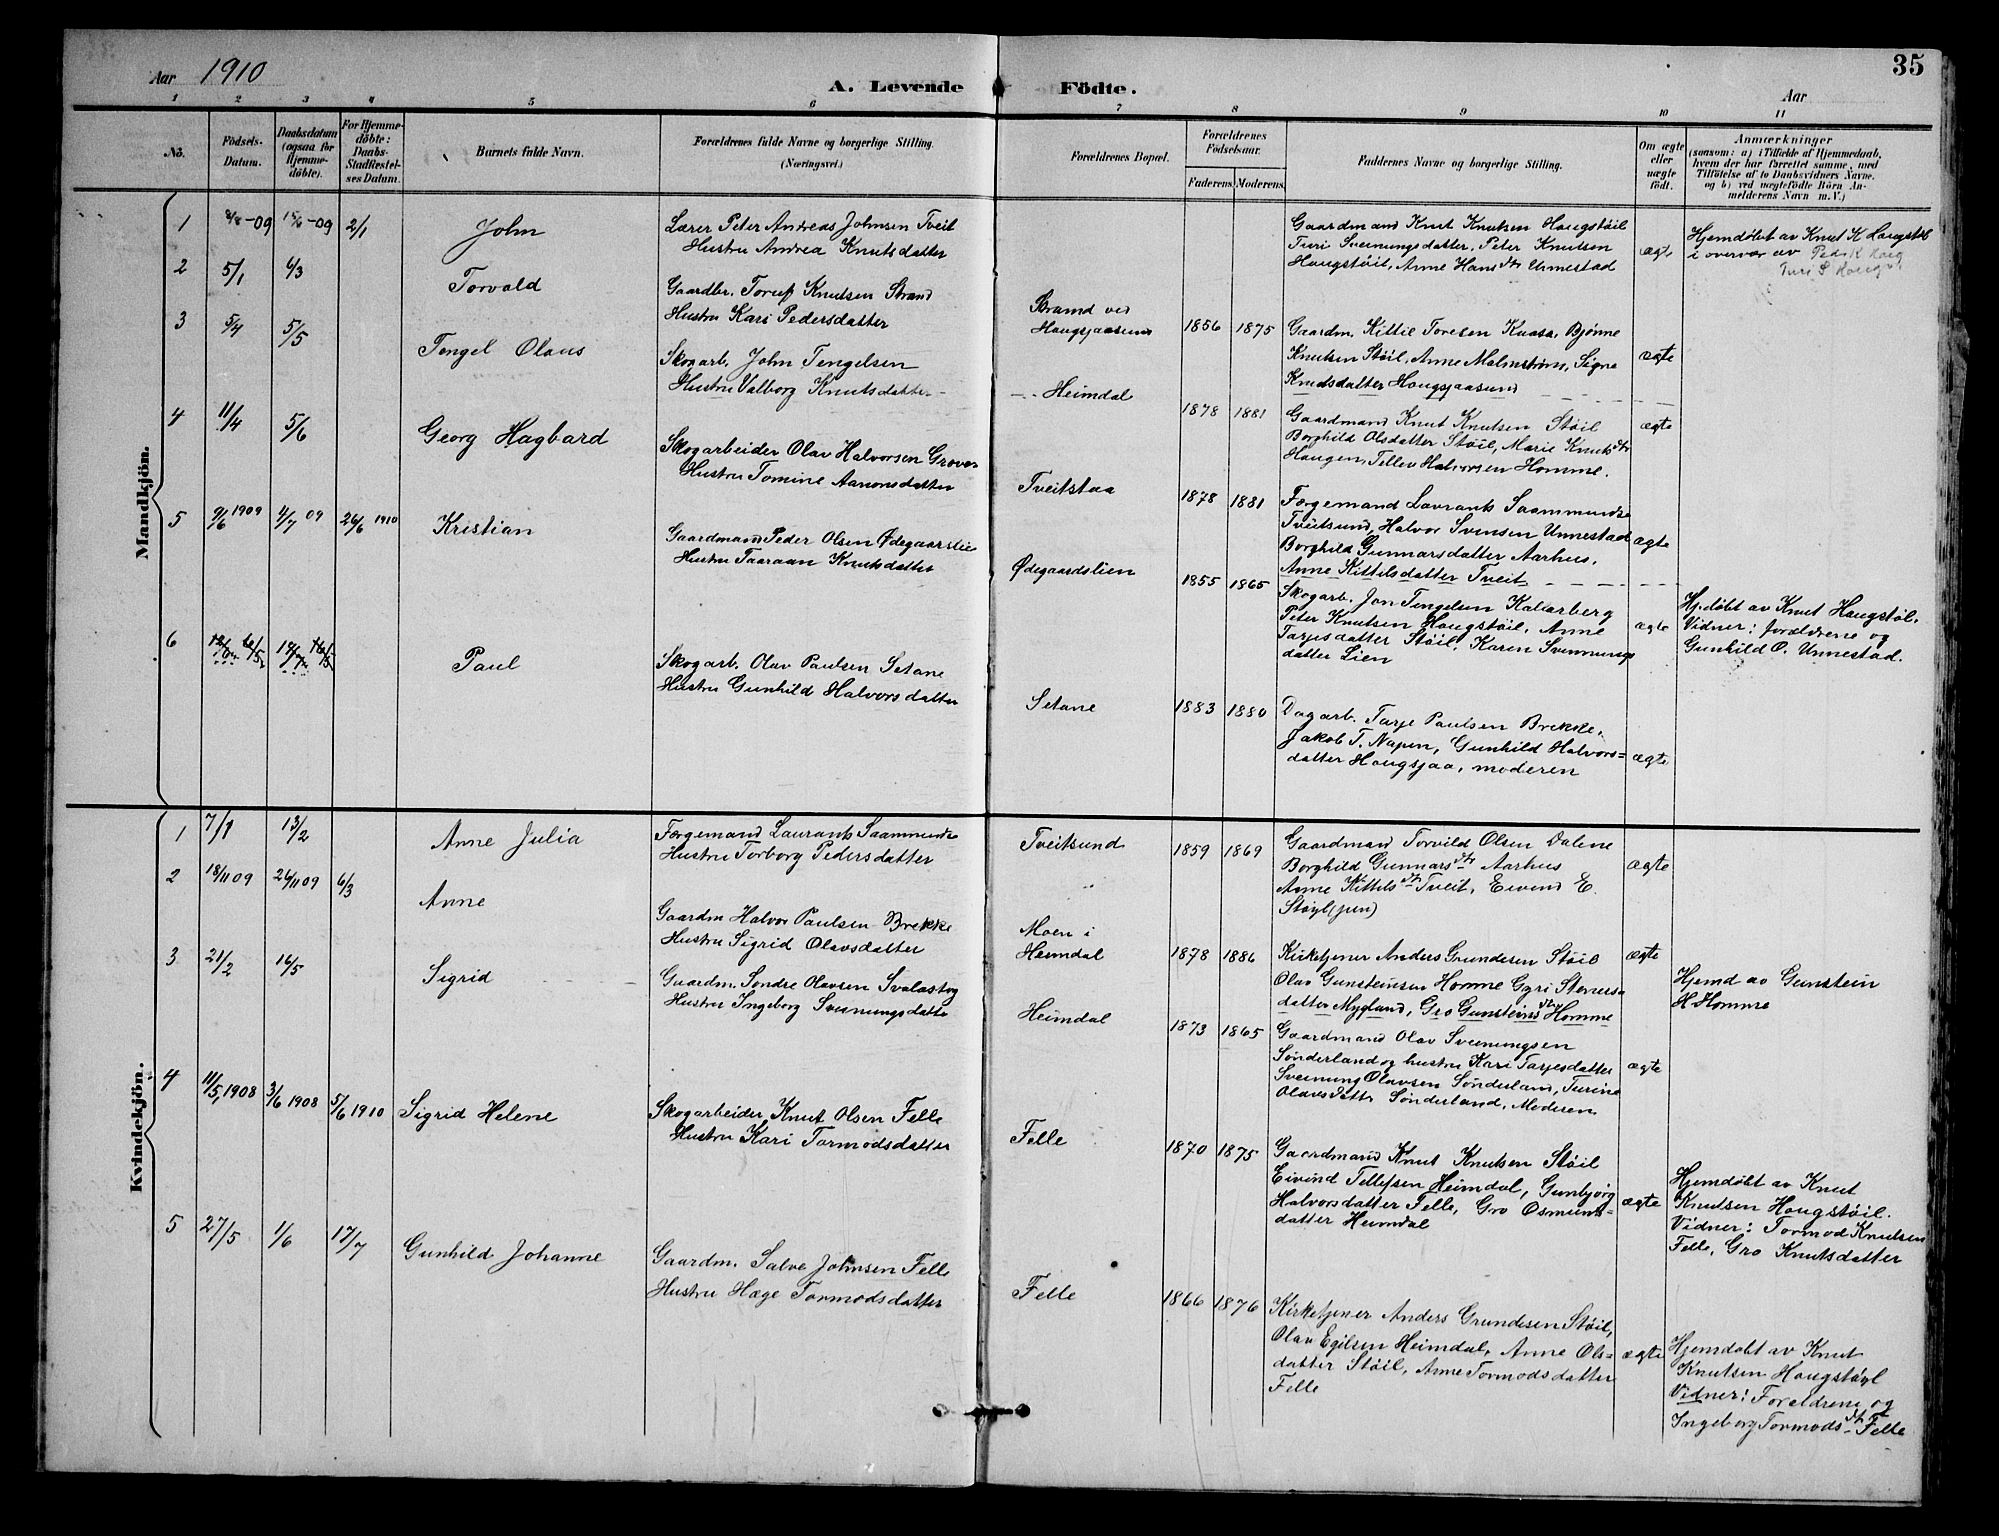 Aar 1910
A. Levende Födte.
Aar
35
1 2 3 4 5 6 7 8 9 10 11
No.
Födsels-
Datum.
Daabsdatum
(ogsaa for
Hjemme-
döbte).
For Hjemme-
döbte:
Daabs-
Stadfæstel-
ses Datum.
Barnets fulde Navn.
Forældrenes fulde Navne og borgerlige Stilling.
(Næringsvei.)
Forældrenes Bopæl.
Forældrenes
Födselsaar.
Faderens. Moderens.
Faddernes Navne og borgerlige Stilling.
Om ægte
eller
uægte
födt.
Anmærkninger
(saasom: a) i Tilfælde af Hjemmedaab,
hvem der har forrettet samme, med
Tilföielse af to Daabsvidners Navne,
og b) ved uægtefödte Börn An-
melderens Navn m. V.)
Mandkjön.
1 -09 -09 2/1
John
Lærer Peter Andreas Johnsen Tveit
Hustru Andrea Knutsdatter
Gaardmand Knut Knutsen Haugstöil
Turi Sveinungsdatter, Peter Knutsen
Haugstöil, Anne Hansdtr Unnestad
ægte
Hjemdøbt av Knut K Haugstøl
i overvær av
2 5/1 6/3
Torvald
Gaardbr. Toruf Knutsen Strand
Hustru Kari Pedersdatter
Strand ved
Haugsjaasund
1856 1875
Gaardm. Kittil Toresen Kaasa, Bjønne
Knutsen Støil, Anne Malmstrøm, Signe
Knudsdatter Haugsjaasund
ægte
3 5/4 5/5
Tengel Olaus
Skogarb. John Tengelsen
Hustru Valborg Knutsdatter
Heimdal
1878 1881
Gaardmand Knut Knutsen Støil
Borghild Olsdatter Støil, Marie Knutsdtr
Haugen, Tellev Halvorsen Homme.
ægte
4 11/4 5/6
Georg Hagbard
Skogarbeider Olav Halvorsen Groven
Hustru Tomine Aanonsdatter
Tveitstaa
1878 1881
Færgemand Lavrants Saammundse
Tveitsund, Halvor Svensen Unnestad
Borghild Gunnarsdatter Aarhus,
Anne Kittelsdatter Tveit
ægte
5 9/6 1909 4/7 09 26/6 1910
Kristian
Gaardmand Peder Olsen Ødegaarslie
Hustru Taaraan Knutsdatter
Ødegaardslien
1855 1865
Skogarb. Jon Tengelsen Kallarberg
Peter Knutsen Haugstöil, Anne
Tarjesdatter Støil, Karen Svennungs
datter Lien
ægte
Hjdøbt av Knut Haugstøl.
Vidner: forældrene og
Gunhild O. Unnestad.
6
Paul
Skogarb. Olav Paulsen Setane
Hustru Gunhild Halvorsdatter
Setane
1883 1880
Dagarb. Tarje Paulsen Brekke,
Jakob T. Napen, Gunhild Halvors=
datter Haugsjaa, moderen
ægte
Kvindekjön.
1 7/1 13/2
Anne Julia
Færgemand Laurants Saammundse
Hustru Torborg Pedersdatter
Tveitsund
1859 1869
Gaardmand Torvild Olsen Dalene
Borghild Gunnarsdtr Aarhus
Anne Kittelsdtr Tveit, Eivind E.
Støyl (jun)
ægte
2 18/11 09 26/11 09 6/3
Anne
Gaardm Halvor Paulsen Brekke
Hustru Sigrid Olavsdatter
Moen i
Heimdal
1878 1886
Kirketjener Anders Grundesen Støil
Olav Gunsteinsen Homme Gyri Steners=
datter Mygland, Gro Gunsteinsdtr Homme
ægte
Hjemd av Gunstein
H Homme
3 21/2 16/5
Sigrid
Gaardm. Sondre Olavsen Svalastog
Hustru Ingeborg Sveinungsdatter
Heimdal
1873 1865
Gaardmand Olav Sveinungsen
Sønderland og hustru Kari Tarjesdatter
Sveinung Olavsen Sønderland, Turine
Olavsdatter Sønderland, Moderen
ægte
4 11/5, 1908 3/6 1908 5/6 1910
Sigrid Helene
Skogarbeider Knut Olsen Felle
Hustru Kari Tormodsdatter
Felle
1870 1875
Gaardmand Knut Knutsen Støil
Eivind Tellefsen Heimdal, Gunbjørg
Halvorsdatter Felle, Gro Osmunds=
datter Heimdal
ægte
Hjemdøbt av Knut
Knutsen Haugstøil.
Vidner: Tormod Knutsen
Felle, Gro Knutsdatter
5 27/5 1/6 17/7
Gunhild Johanne
Gaardm. Salve Johnsen Felle
Hustru Hæge Tormodsdatter
Felle
1866 1876
Kirketjener Anders Grundesen Støil,
Olav Egilsen Heimdal, Anne Ols=
datter Støil, Anne Tormodsdatter
Felle
ægte
Hjemdøbt av Knut
Knutsen Haugstøyl
Vidner: Foreldrene og
Ingeborg Tormodsdtr Felle